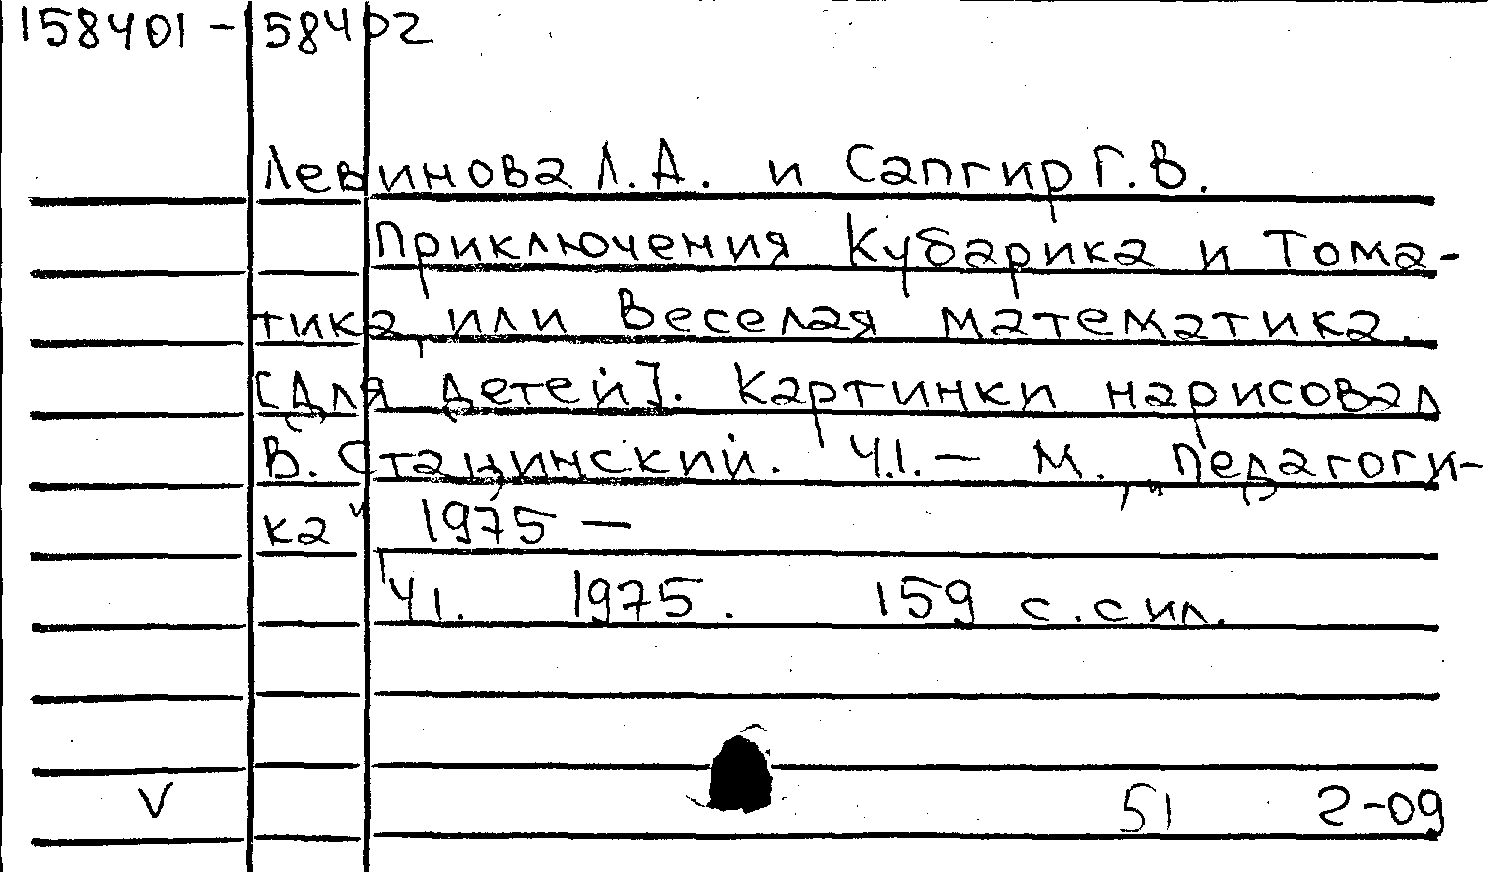 158401-58402
Левинова Л.А. и Сапгир Г.В.
Приключения Кубарика и Тома-
тика, или Веселая математика.
[Для детей]. Картинки нарисовал
В. Стацинский. Ч.1.- М., "Педагоги-
ка" 1975 -
Ч1. 1975. 159 с.с ил.
V 51 2-09